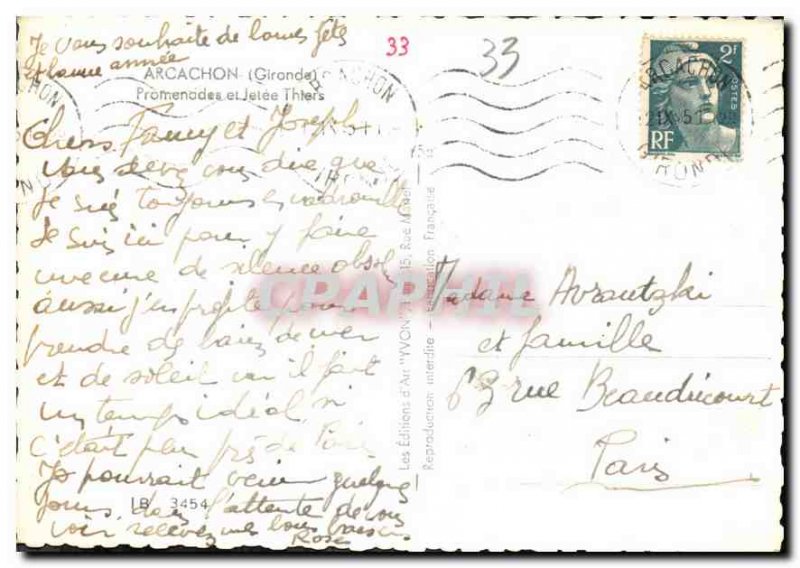 Je vous souhaite de bonnes fêtes
et bonne année
33
33
ARCACHON (Gironde)
Promenades et Jetée Thiers
Chers Fanny et Joseph
Vous devez vous dire que
Je suis toujours en vadrouille
Je suis ici pour y faire
une cure de silence absol
aussi j'en profite pour
prendre de bains de mer
et de soleil car il fait
un temps idéal si
c'était plus près de Paris
Je pourrait venir quelques
jours dans l'attente de vous
voir recevez mes bons baisers
Rose
LB 3454
Les Editions d'Art "YVON", 15, Rue Martel
Reproduction interdite — Fabrication Française
2f
POSTES
RF
ARCACHON
GIRONDE
Madame Avrautzki
et famille
63 rue Beaudricourt
Paris
CPAPHIL